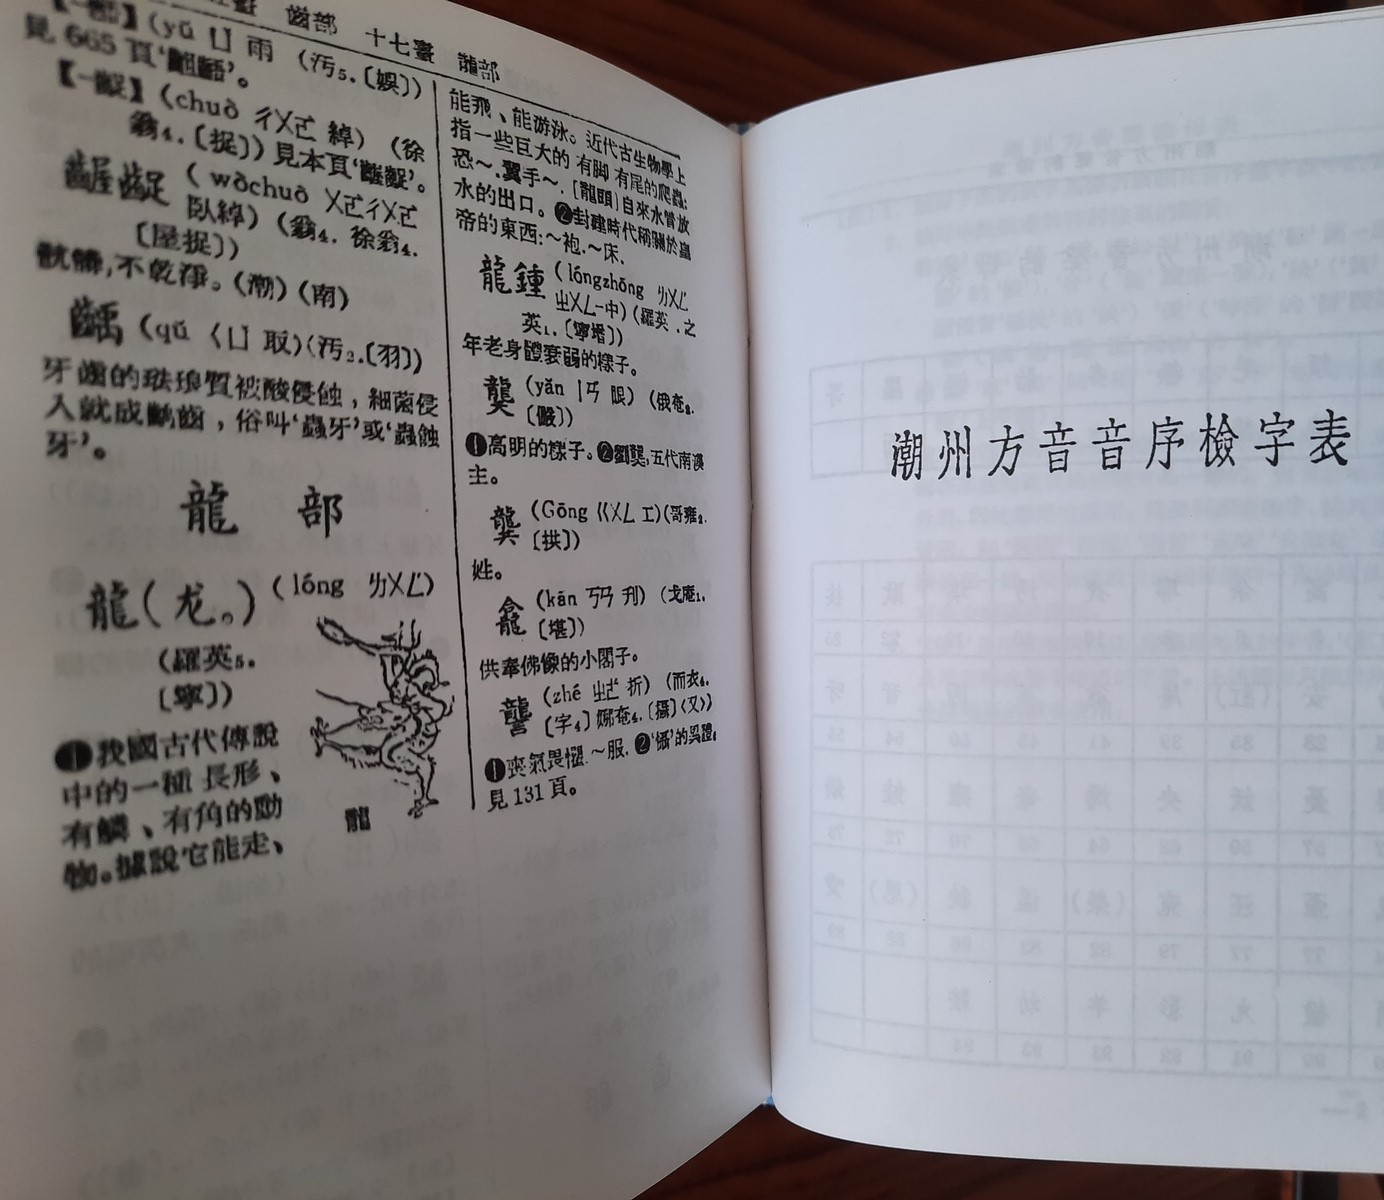 齒部 十七畫 龍部
(yǔ ㄩˇ 雨 (汚₅.〔娛〕)
見 665 頁‘齟齬’。
(chuò ㄔㄨㄛ 綽) (徐
翁₄.〔捉〕) 見本頁‘齷齪’。
齷齪 (wòchuò ㄨㄛㄔㄨㄛ
臥綽) (翁₄. 徐翁₄.
〔屋捉〕)
骯髒,不乾淨。(潮)(南)
齲 (qǔ ㄑㄩˇ 取)(汚₂.〔羽〕)
牙齒的琺琅質被酸侵蝕,細菌侵
入就成齲齒,俗叫‘蟲牙’或‘蟲蝕
牙’。
龍 部
龍(龙。) (lóng ㄌㄨㄥˊ)
(羅英₅.
〔寧〕)
❶我國古代傳說
中的一種 長形、
有鱗、有角的動
物。據說它能走、
龍
能飛、能游泳。近代古生物學上
指一些巨大的 有脚 有尾的爬蟲:
恐~.翼手~.[龍頭]自來水管放
水的出口。❷封建時代稱關於皇
帝的東西:~袍.~床.
龍鍾 (lóngzhōng ㄌㄨㄥˊ
ㄓㄨㄥ-中)(羅英₅.之
英₁.〔寧增〕)
年老身體衰弱的樣子。
龑 (yǎn ㄧㄢˇ 眼) (俄奄₂.
〔儼〕)
❶高明的樣子。❷劉龑,五代南漢
主。
龔 (Gōng ㄍㄨㄥ 工)(哥雍₂.
〔拱〕)
姓。
龕 (kān ㄎㄢ 刋) (戈庵₁.
〔堪〕)
供奉佛像的小閣子。
讋 (zhé ㄓㄜˊ 折) (而衣₄.
〔字₄〕 娜奄₄.〔攝〕〈又〉)
❶喪氣畏懼.~服.❷‘慴’的異體,
見 131 頁。
潮州方音音序檢字表